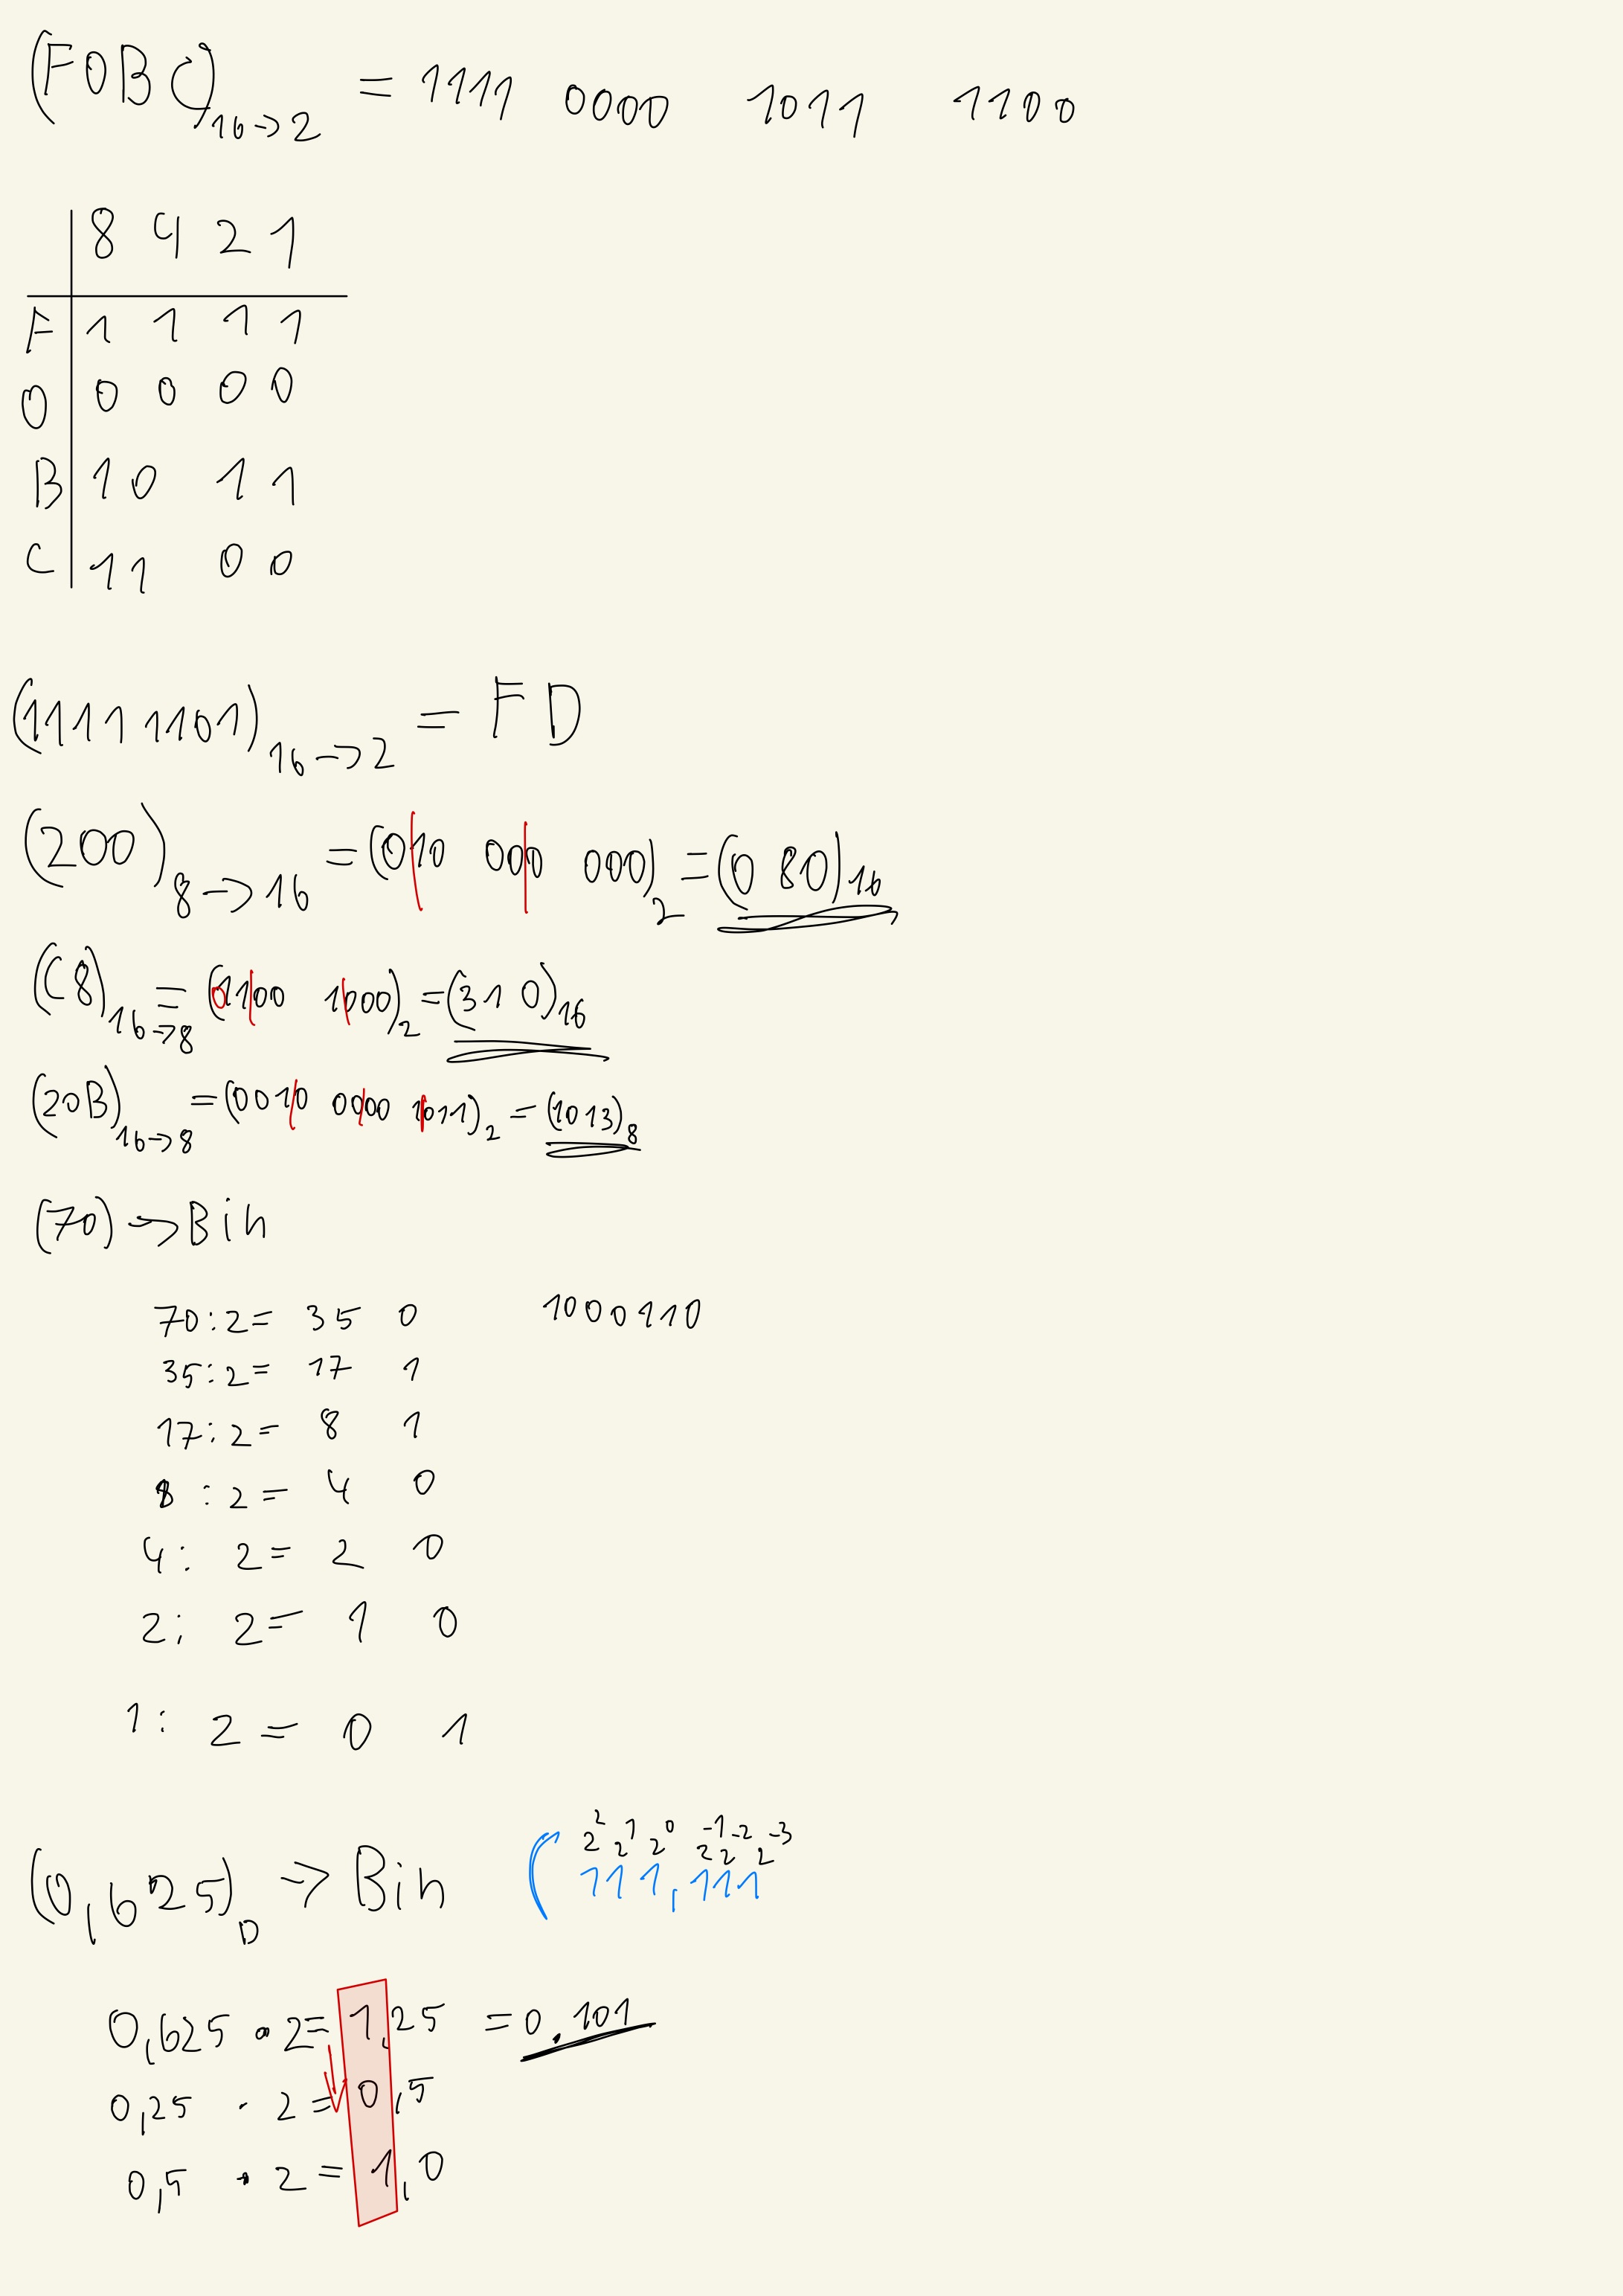 (F0BC)16→2 = 1111 0000 1011 1100
8 4 2 1
F 1 1 1 1
0 0 0 0 0
B 1 0 1 1
C 1 1 0 0
(1111 1101)16→2 = FD
(200)8→16 = (010 000 000)2 = (0 80)16
(C8)16→8 = (01100 1000)2 = (310)16
(20B)16→8 = (0010 0000 1011)2 = (1013)8
(70) → Bin
70:2= 35 0 1000110
35:2= 17 1
17:2= 8 1
8 :2= 4 0
4: 2= 2 0
2: 2= 1 0
1: 2= 0 1
2² 2¹ 2⁰ 2⁻¹ 2⁻² 2⁻³
(0,625)D → Bin ( 111,111
0,625 · 2= 1,25 = 0.101
0,25 · 2= 0,5
0,5 · 2= 1,0